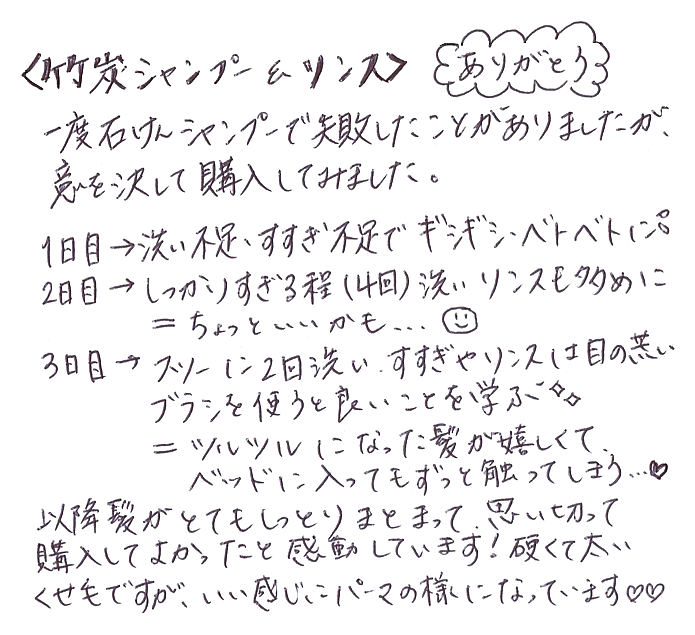 〈竹炭シャンプー＆リンス〉 ありがとう
一度石けんシャンプーで失敗したことがありましたが、
意を決して購入してみました。
1日目→洗い不足、すすぎ不足でギシギシ・ベトベトに。
2日目→しっかりすぎる程(4回)洗いリンスも多めに
＝ちょっといいかも…
3日目→フツーに2回洗い、すすぎやリンスは目の荒い
ブラシを使うと良いことを学ぶ
＝ツルツルになった髪が嬉しくて、
ベッドに入ってもずっと触ってしまう…♥
以降髪がとてもしっとりまとまって、思い切って
購入してよかったなと感動しています！硬くて太い
くせ毛ですが、いい感じにパーマの様になっています♡♡